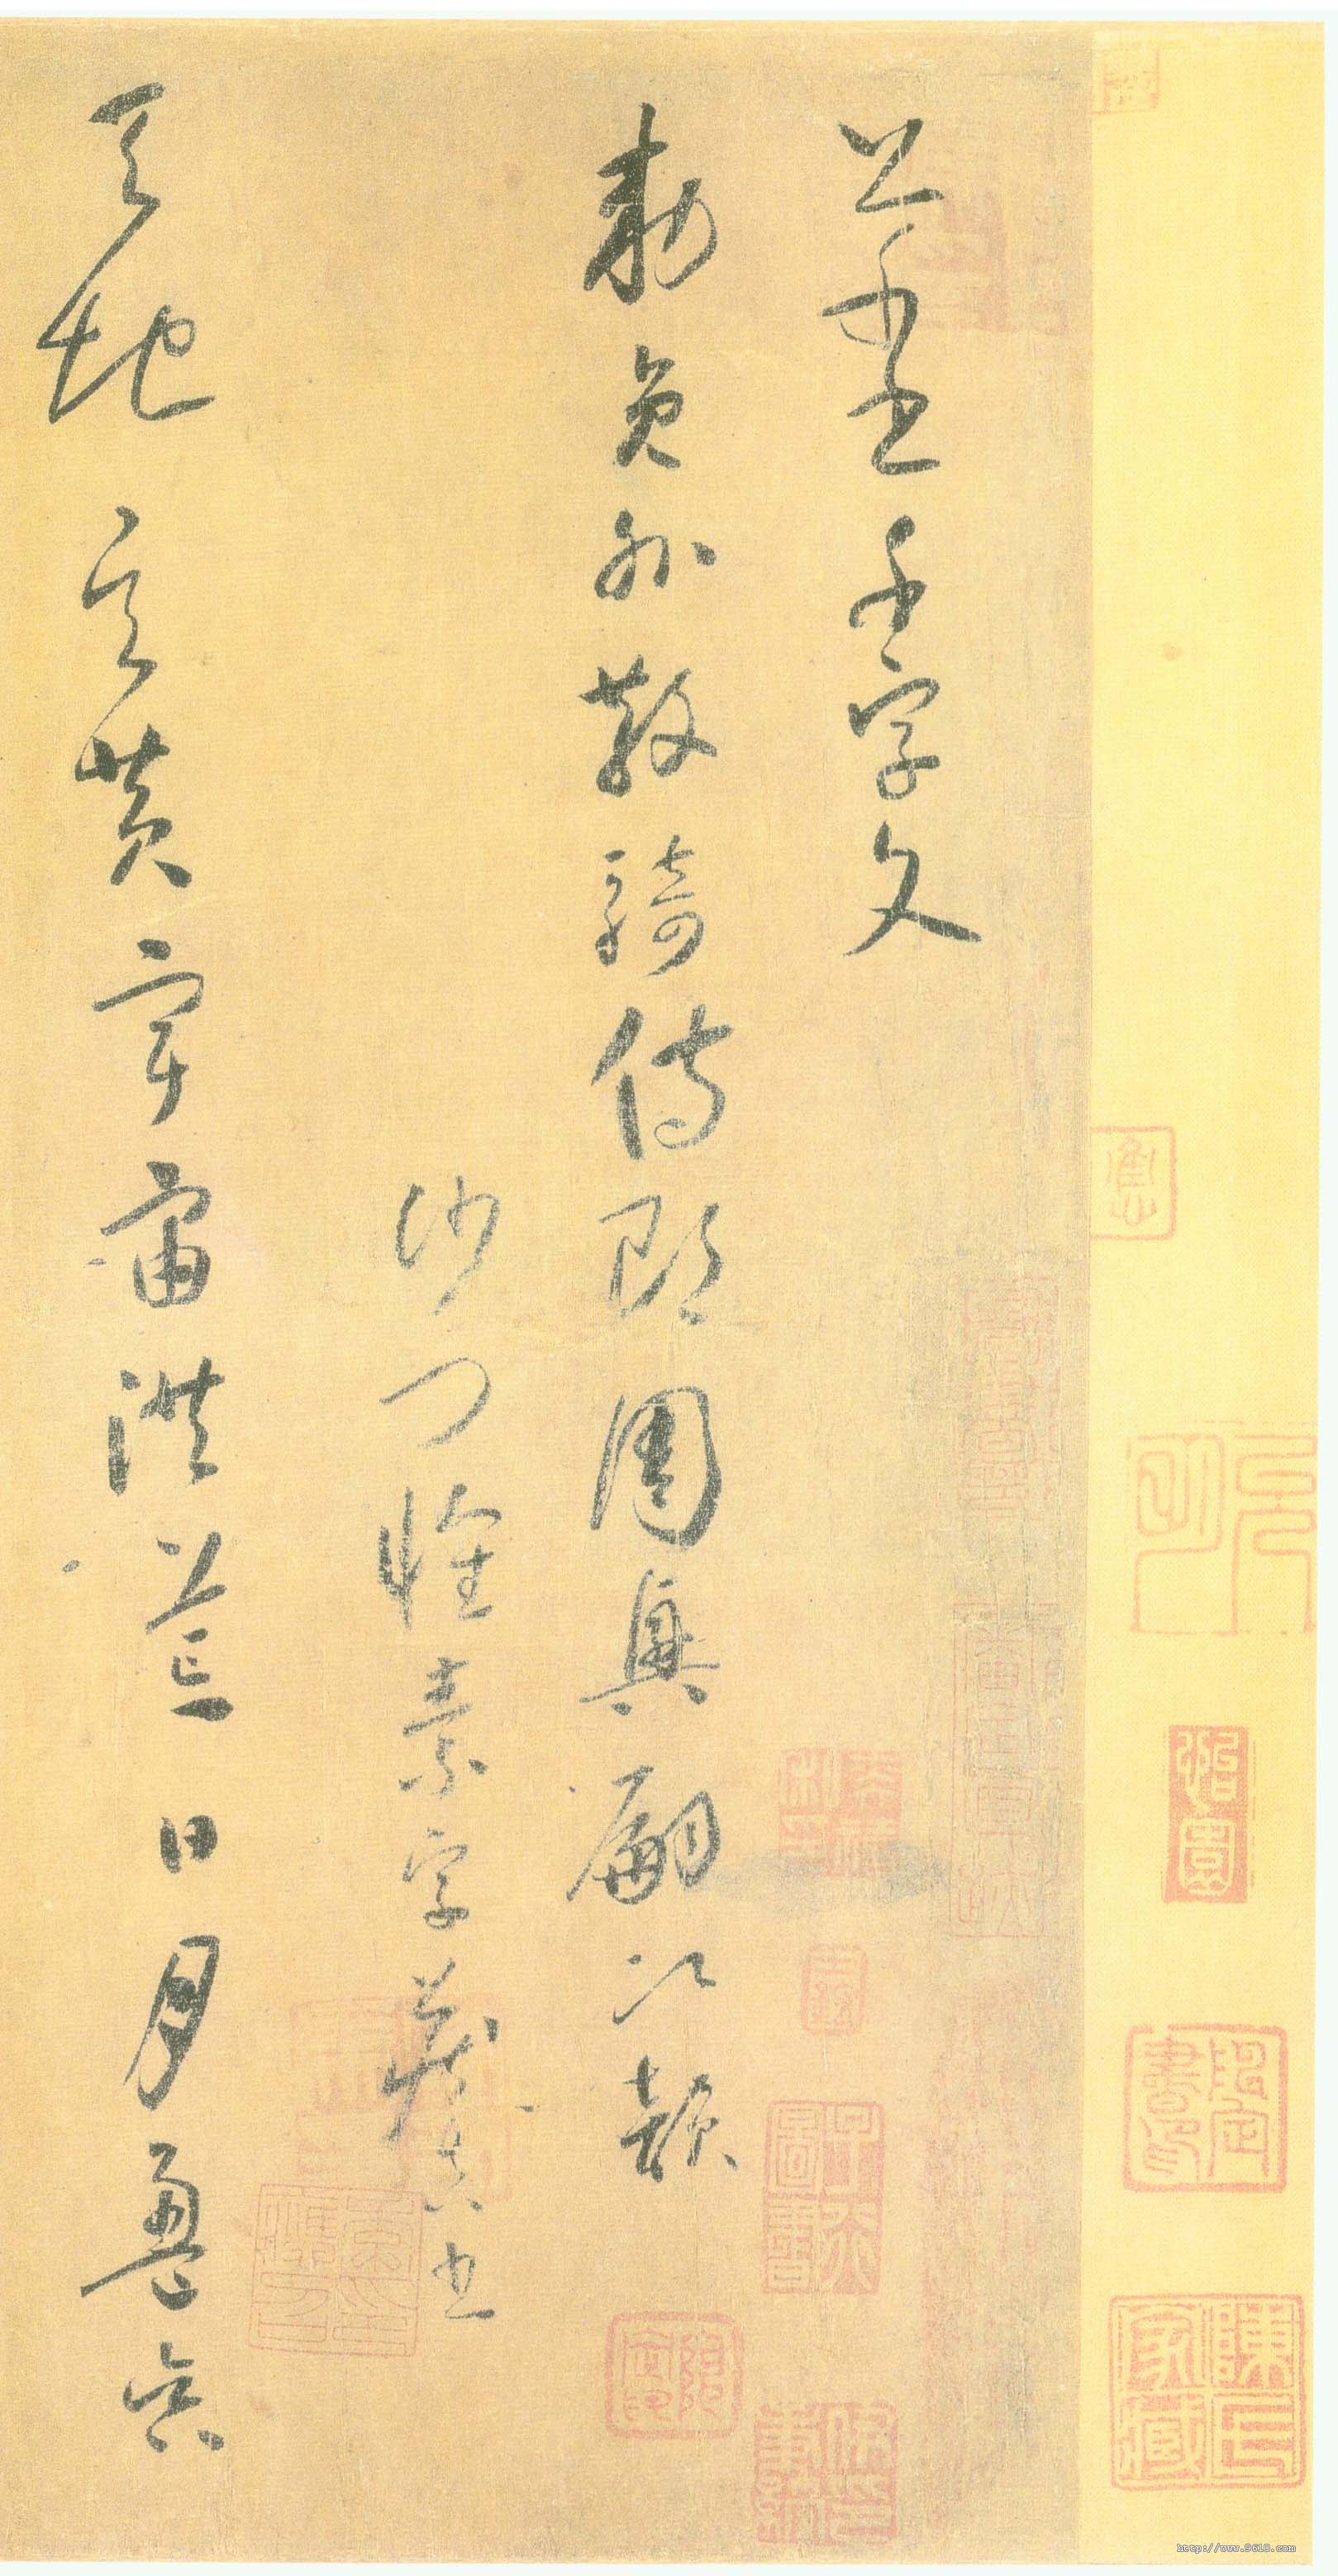 草書千字文
勅員外散騎侍郎周興嗣次韻
沙門懷素字藏真書
天地玄黃宇宙洪荒日月盈昃
http://www.9610.com